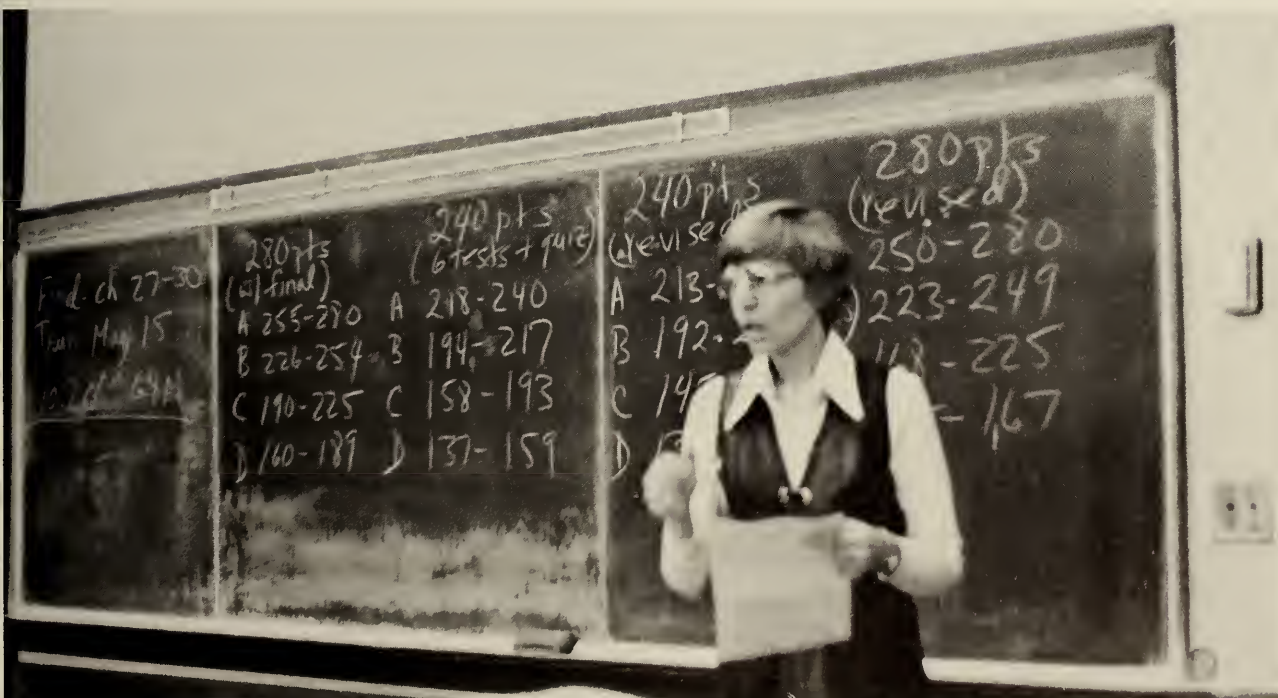 ch 27-30
May 15
280 pts
(w/final)
A 255-280
B 226-254
C 190-225
D 160-189
240 pts
(6 tests + quiz)
A 218-240
B 194-217
C 158-193
D 137-159
240 pts
(revised
A 213-
B 192-
C 14
D
280 pts
(revised)
250-280
223-249
-225
- 167